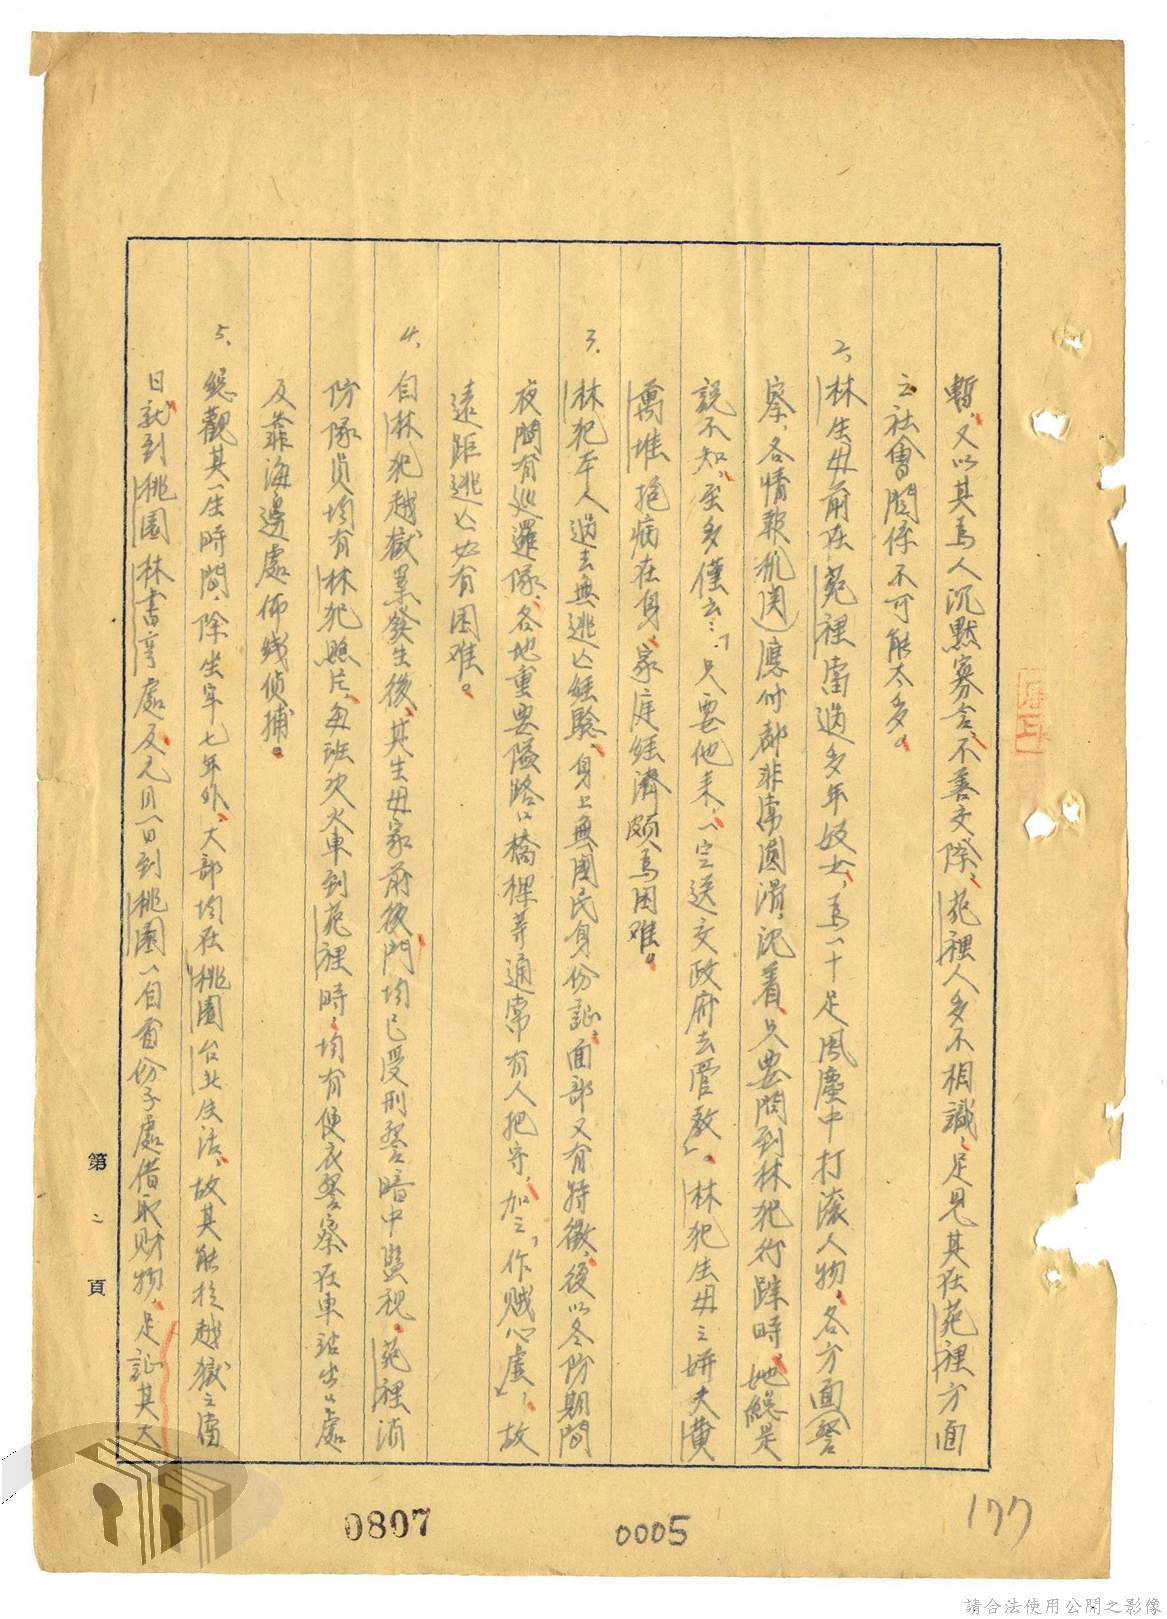 暫，又以其為人沉默寡言，不善交際，苑裡人多不相識，足見其在苑裡方面
之社會關係不可能太多。
2、林生母前在苑裡當過多年妓女，為一十足風塵中打滾人物，各方面警
察，各情報机関應付都非常圓滑，沉着，只要問到林犯行踪時，她總是
說不知，至多僅云：「只要他來，一定送交政府去管教」。林犯生母之姘夫黃
萬堆抱病在身，家庭経濟頗為困难。
3、林犯本人過去無逃亡経驗，身上無國民身份証，面部又有特徵，後以冬防期間
夜間有巡邏隊，各地重要隘路口橋樑等通常有人把守，加之，作賊心虛，故
遠距逃亡必有困难。
4、自林犯越獄案發生後，其生母家前後門均已受刑警暗中監視。苑裡消
防隊員均有林犯照片，每班次火車到苑裡時，均有便衣警察在車站出口處
及靠海邊處佈线偵捕。
5、總觀其一生時間，除坐牢七年外，大部均在桃園台北生活，故其能於越獄之當
日就到桃園林書亭處及元月一日到桃園一自首份子處借取财物，足証其大
第二頁
0807
0005
177
請合法使用公開之影像